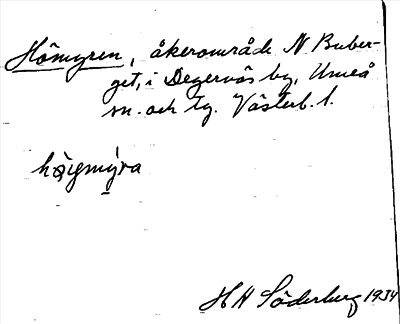 Hömyren, åkerområde N Buber-
get, i Degernäs by, Umeå
sn. och tg. Västerb. l.
höigmýra
H H Söderberg 1934